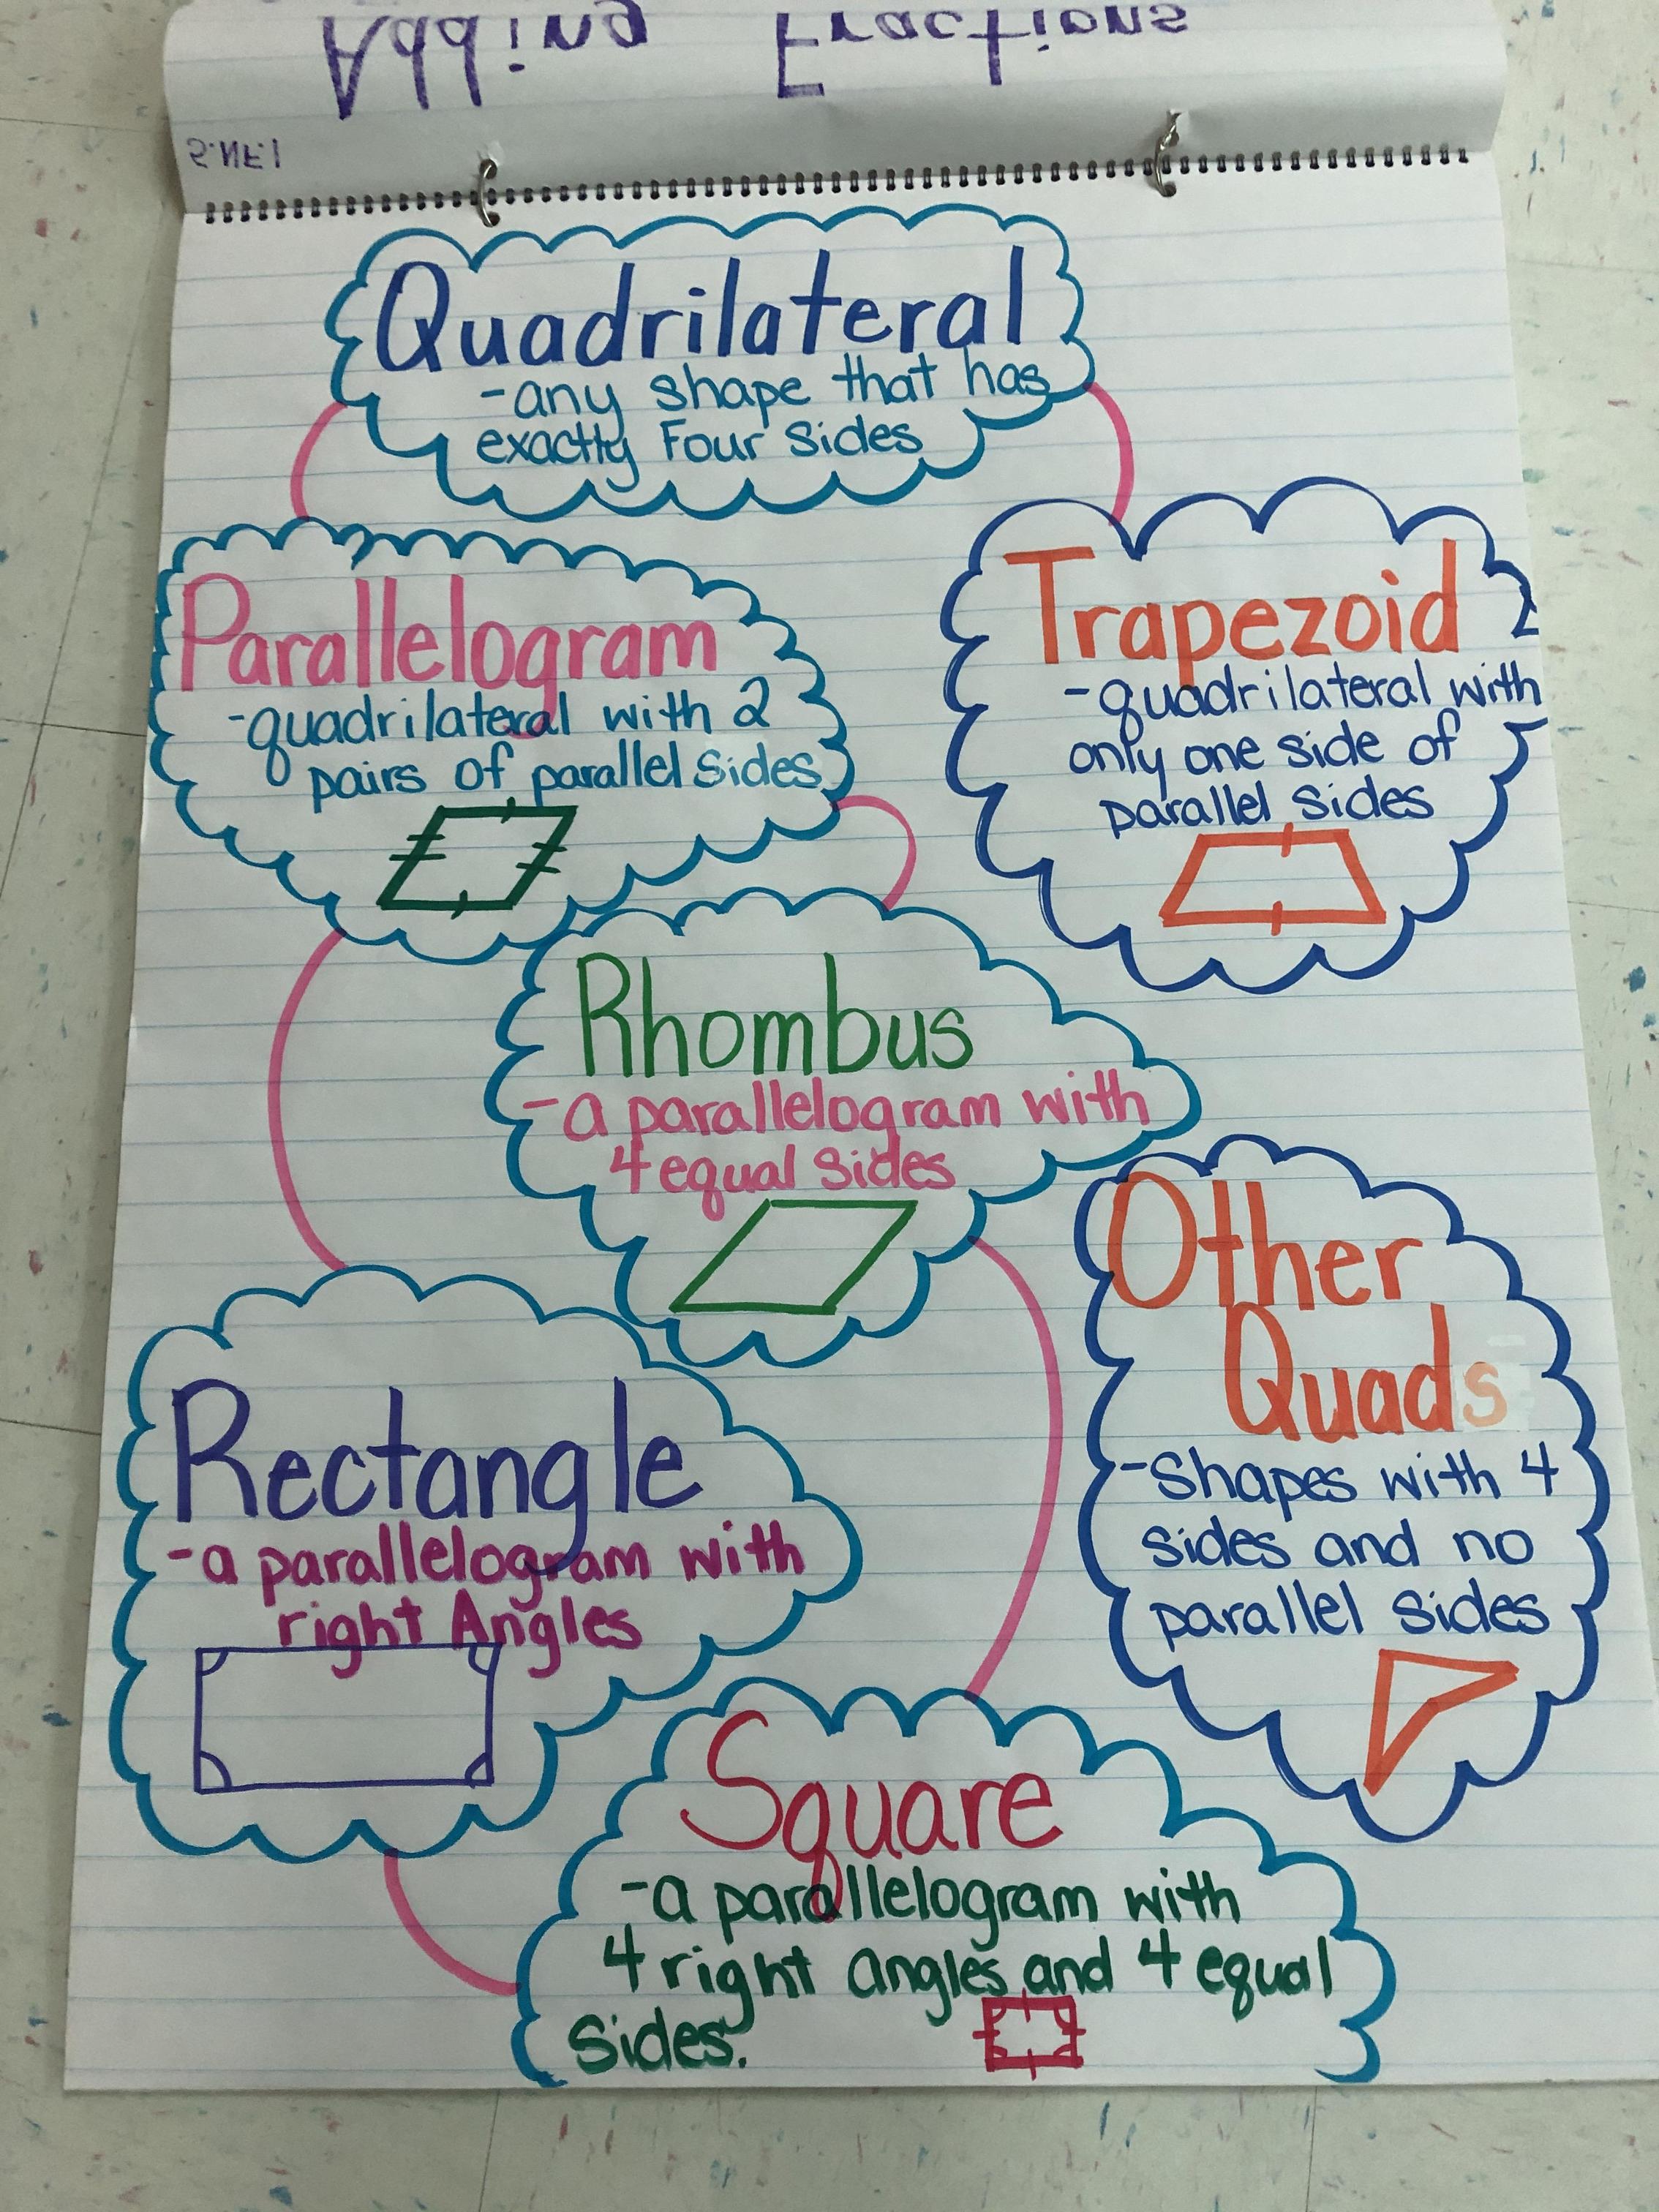 Adding Fractions
5.NF.1
Quadrilateral
-any shape that has
exactly Four Sides
Parallelogram
-quadrilateral with 2
pairs of parallel Sides
Trapezoid
-quadrilateral with
only one side of
parallel sides
Rhombus
-a parallelogram with
4 equal Sides
Other
Quads
-Shapes with 4
sides and no
parallel sides
Rectangle
-a parallelogram with
right Angles
Square
-a parallelogram with
4 right angles and 4 equal
Sides.